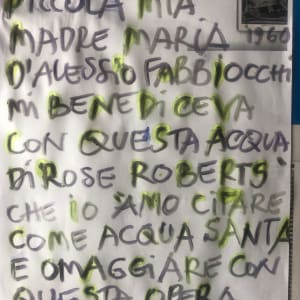 PICCOLA MIA
MADRE MARIA 1960
D'ALESSIO FABBIOCCHI
MI BENEDICEVA
CON QUESTA ACQUA
DI ROSE ROBERTS
CHE IO AMO CITARE
COME ACQUA SANTA
E OMAGGIARE CON
QUESTA OPERA